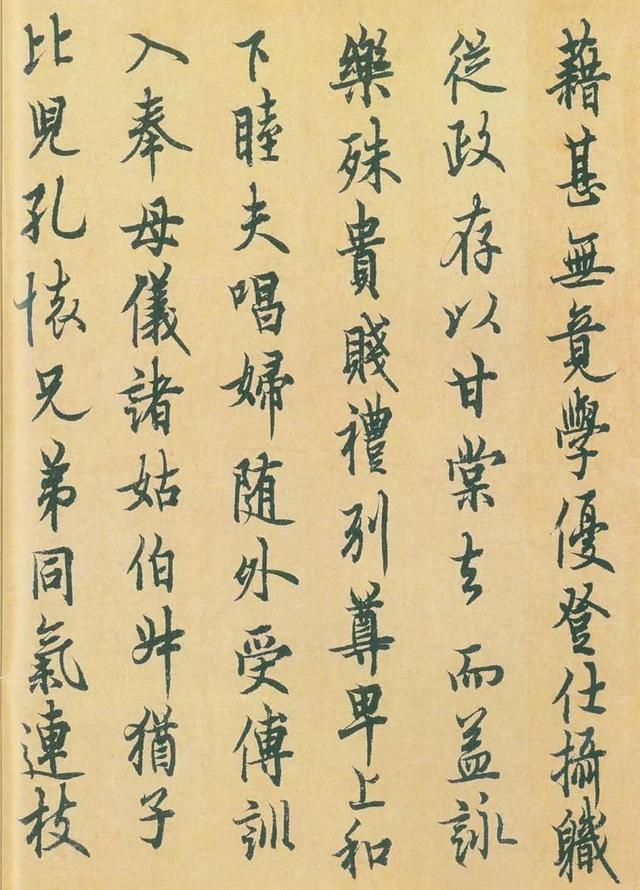 藉甚無竟學優登仕攝職
從政存以甘棠去而益詠
樂殊貴賤禮別尊卑上和
下睦夫唱婦随外受傅訓
入奉母儀諸姑伯叔猶子
比兒孔懷兄弟同氣連枝